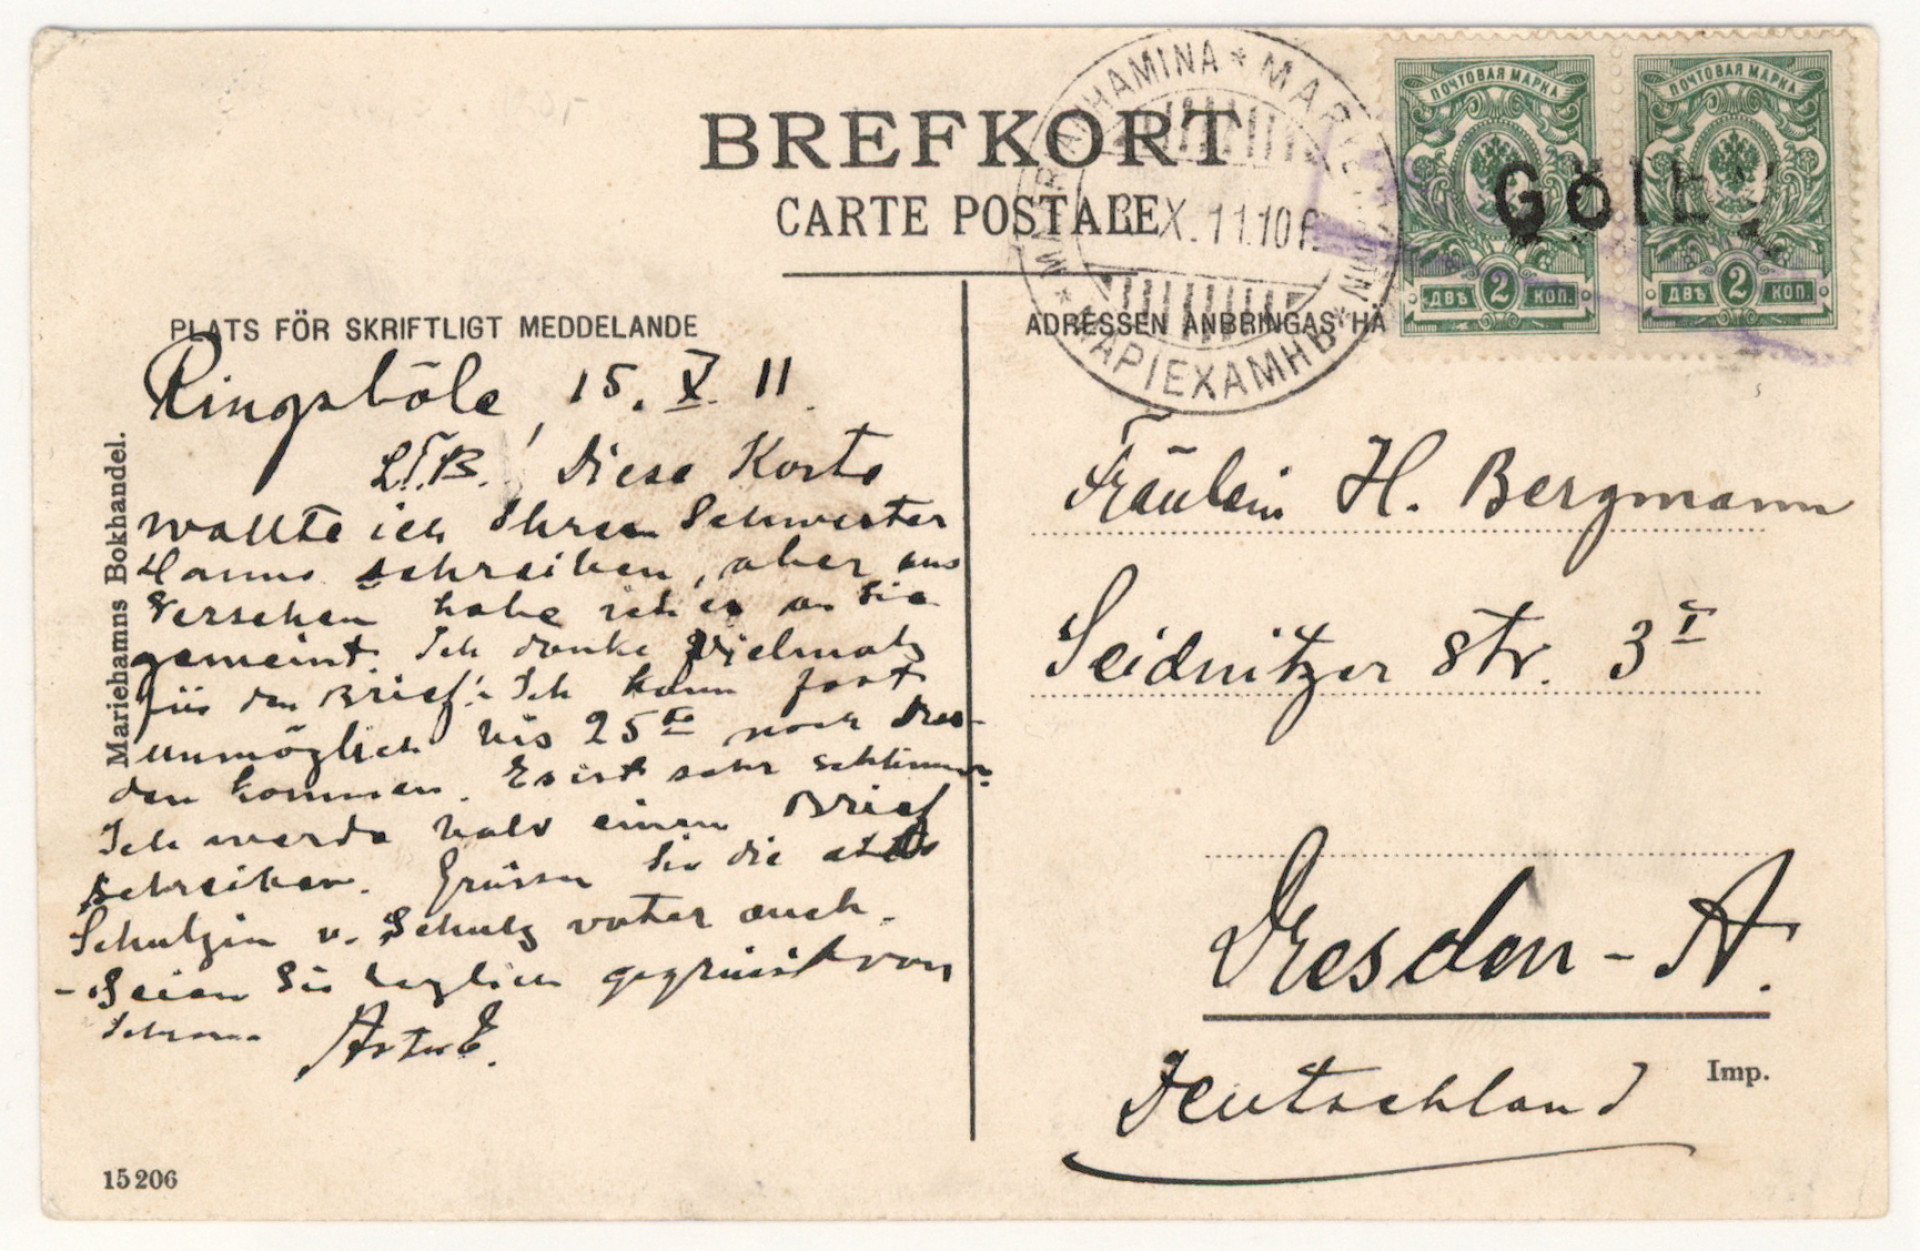 BREFKORT
CARTE POSTALE
MARIEHAMN * MAARIANHAMINA * МАРІЕХАМНЪ *
X.11.10
ПОЧТОВАЯ МАРКА
ДВѢ 2 КОП.
ПОЧТОВАЯ МАРКА
ДВѢ 2 КОП.
Gölby
PLATS FÖR SKRIFTLIGT MEDDELANDE
ADRESSEN ANBRINGAS HÄ
Mariehamns Bokhandel.
Ringsböle, 15. X. 11.
Diese Karte
wollte ich Ihrer Schwester
Hanna schreiben, aber aus
Versehen habe ich es an Sie
gemeint. Ich danke Vielmals
für den Brief! Ich kann fast
unmöglich bis 25te nach Dres-
den kommen. Es ist sehr schlimm.
Ich werde bald einen Brief
schreiben. Grüssen Sie die
Schulzin u. Schulz vater auch.
- Seien Sie herzlich gegrüsst von
Ihrem
Fräulein H. Bergmann
Seidnitzer Str. 3 I
Dresden - A.
Deutschland
Imp.
15206